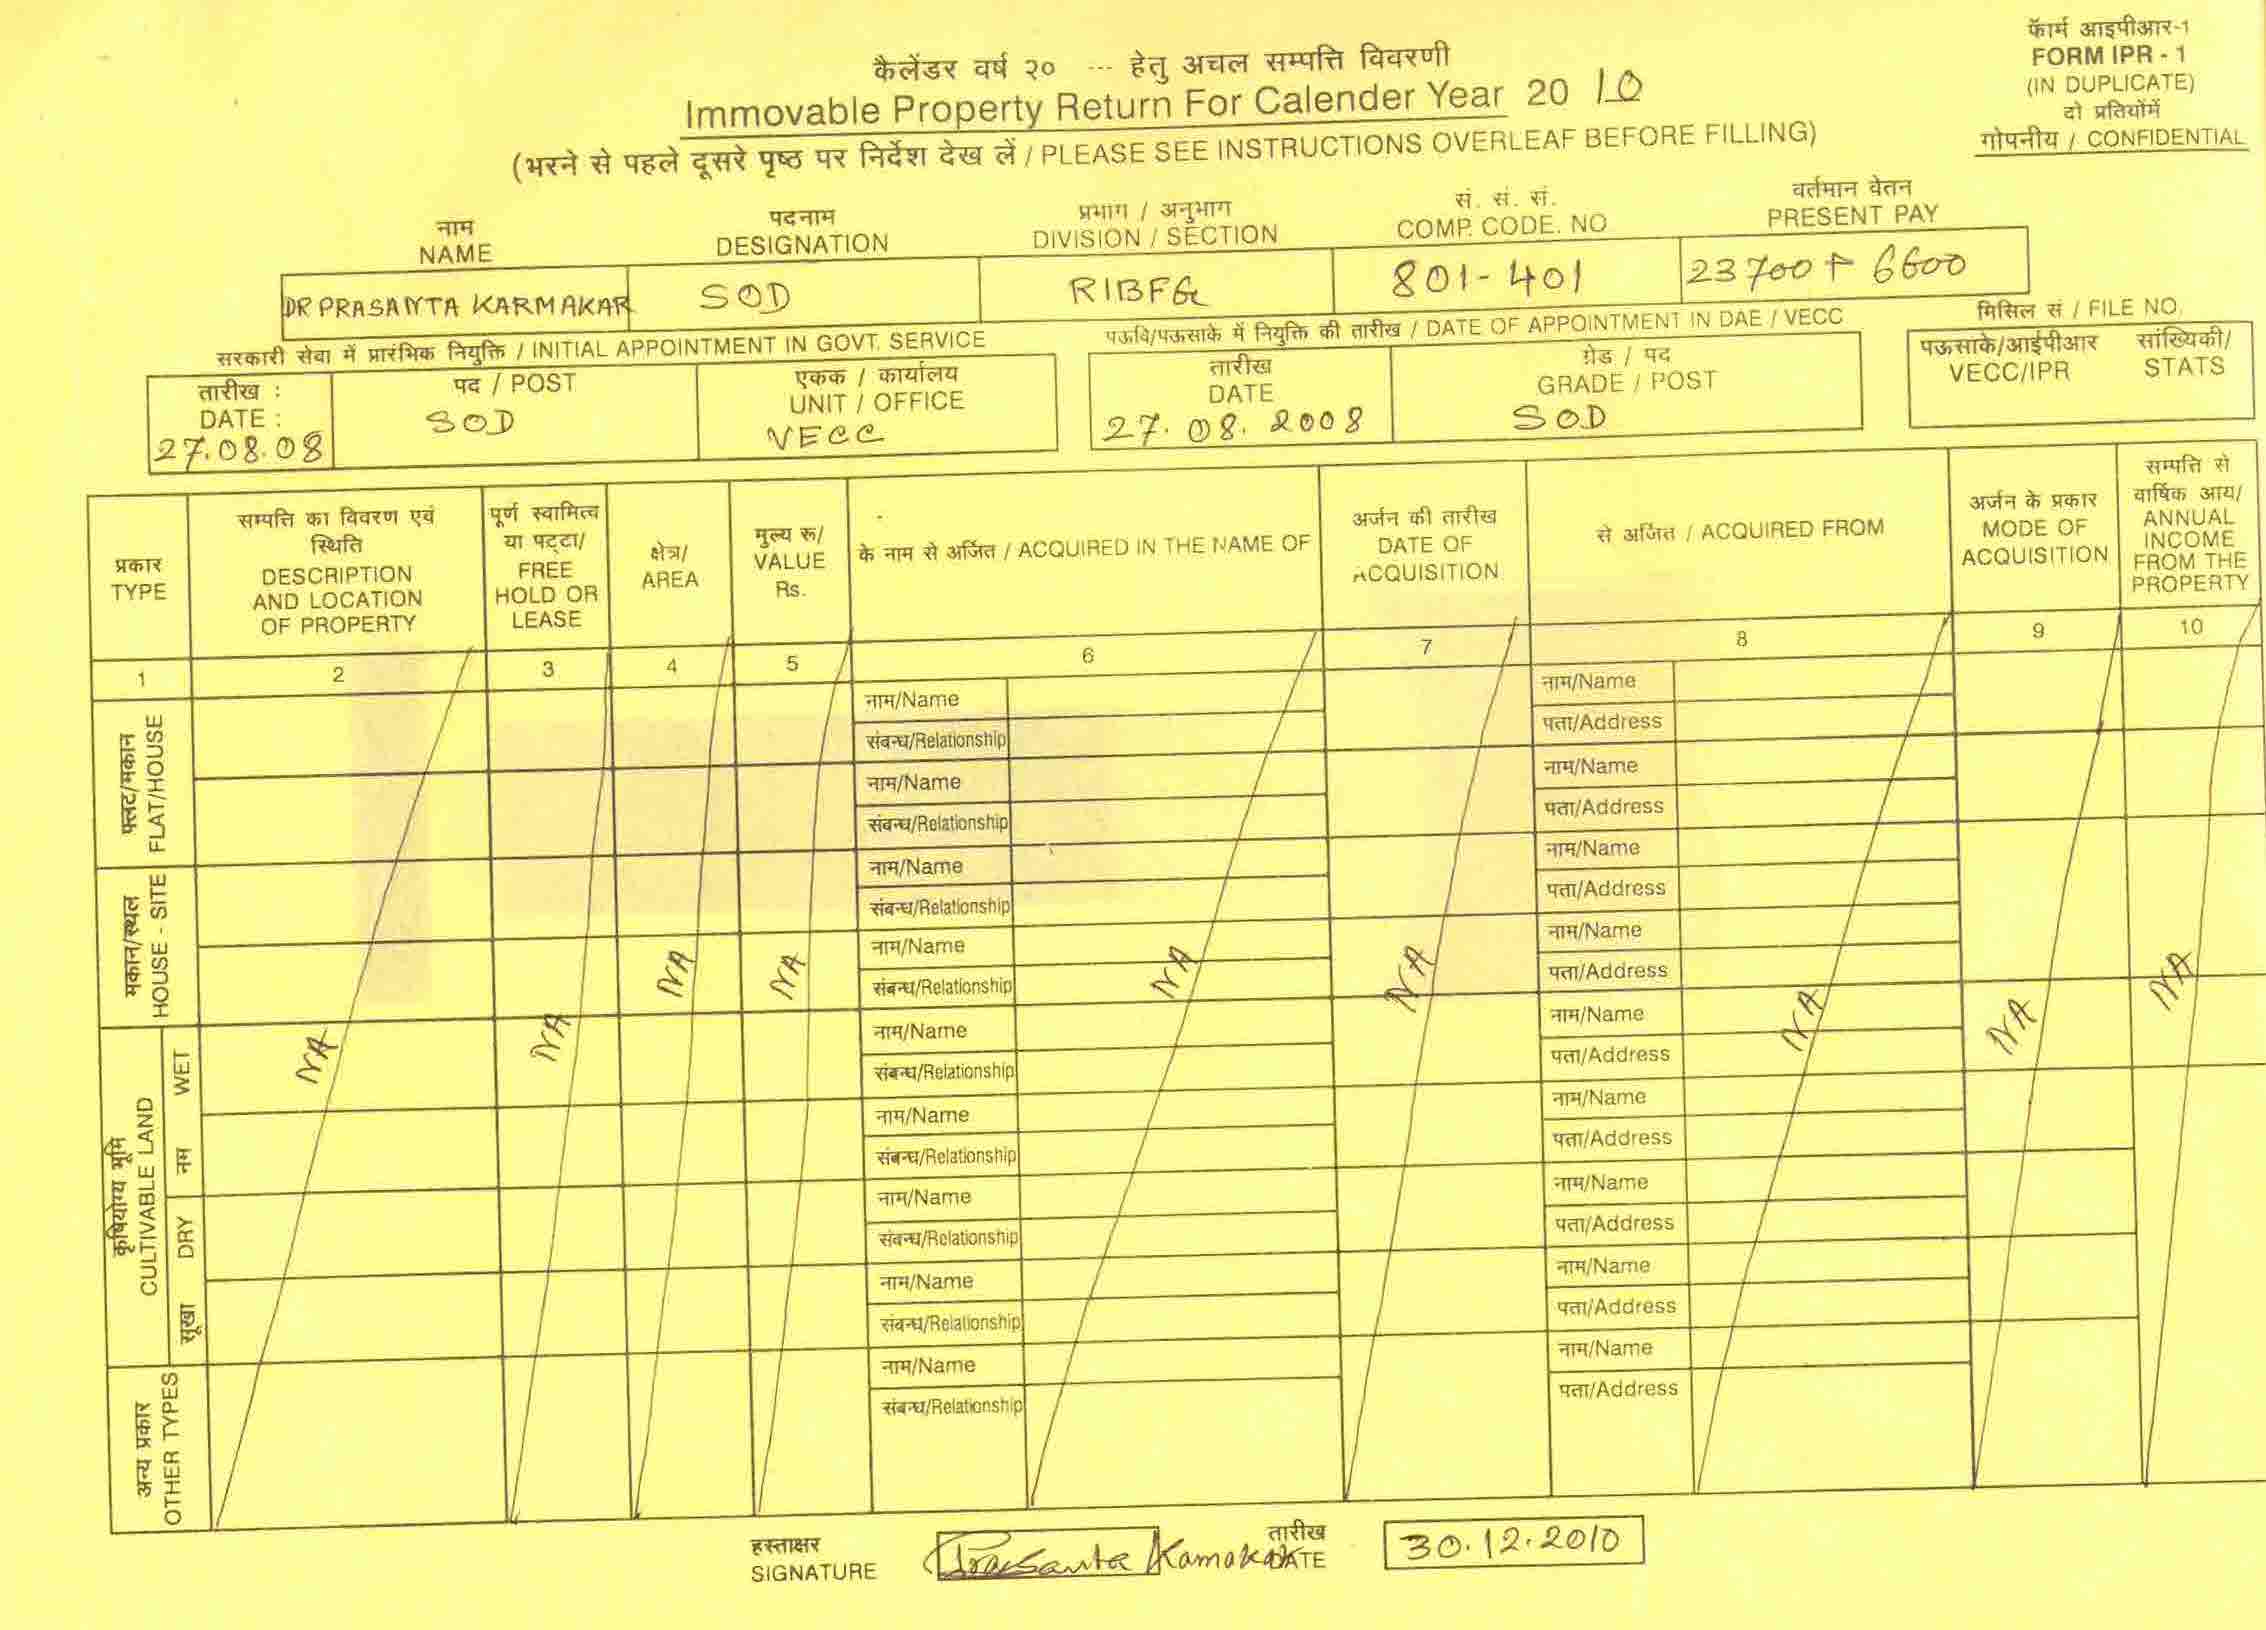 फॅार्म आइपीआर-1
FORM IPR - 1
(IN DUPLICATE)
दो प्रतियोंमें
गोपनीय / CONFIDENTIAL
कैलेंडर वर्ष २० --- हेतु अचल सम्पत्ति विवरणी
Immovable Property Return For Calender Year 20 10
(भरने से पहले दूसरे पृष्ठ पर निर्देश देख लें / PLEASE SEE INSTRUCTIONS OVERLEAF BEFORE FILLING)
नाम
NAME
पदनाम
DESIGNATION
प्रभाग / अनुभाग
DIVISION / SECTION
सं. सं. सं.
COMP. CODE. NO
वर्तमान वेतन
PRESENT PAY
DR PRASANTA KARMAKAR SOD RIBFG 801-401 23700 + 6600
सरकारी सेवा में प्रारंभिक नियुक्ति / INITIAL APPOINTMENT IN GOVT. SERVICE
पऊवि/पऊसाके में नियुक्ति की तारीख / DATE OF APPOINTMENT IN DAE / VECC
मिसिल सं / FILE NO.
तारीख :
DATE :
27.08.08
पद / POST
SOD
एकक / कार्यालय
UNIT / OFFICE
VECC
तारीख
DATE
27. 08. 2008
ग्रेड / पद
GRADE / POST
SOD
पऊसाके/आईपीआर
VECC/IPR
सांख्यिकी/
STATS
प्रकार
TYPE
सम्पत्ति का विवरण एवं
स्थिति
DESCRIPTION
AND LOCATION
OF PROPERTY
पूर्ण स्वामित्व
या पट्टा/
FREE
HOLD OR
LEASE
क्षेत्र/
AREA
मुल्य रू/
VALUE
Rs.
के नाम से अर्जित / ACQUIRED IN THE NAME OF
अर्जन की तारीख
DATE OF
ACQUISITION
से अर्जित / ACQUIRED FROM
अर्जन के प्रकार
MODE OF
ACQUISITION
सम्पत्ति से
वार्षिक आय/
ANNUAL
INCOME
FROM THE
PROPERTY
1 2 3 4 5 6 7 8 9 10
फ्लट/मकान
FLAT/HOUSE
मकान/स्थल
HOUSE - SITE
कृषियोग्य भूमि
CULTIVABLE LAND
WET
नम
DRY
सूखा
अन्य प्रकार
OTHER TYPES
NA NA NA NA NA NA NA NA NA
नाम/Name
संबन्ध/Relationship
नाम/Name
संबन्ध/Relationship
नाम/Name
संबन्ध/Relationship
नाम/Name
संबन्ध/Relationship
नाम/Name
संबन्ध/Relationship
नाम/Name
संबन्ध/Relationship
नाम/Name
संबन्ध/Relationship
नाम/Name
संबन्ध/Relationship
नाम/Name
संबन्ध/Relationship
नाम/Name
पता/Address
नाम/Name
पता/Address
नाम/Name
पता/Address
नाम/Name
पता/Address
नाम/Name
पता/Address
नाम/Name
पता/Address
नाम/Name
पता/Address
नाम/Name
पता/Address
नाम/Name
पता/Address
हस्ताक्षर
SIGNATURE
Prasanta Karmakar
तारीख
DATE
30.12.2010